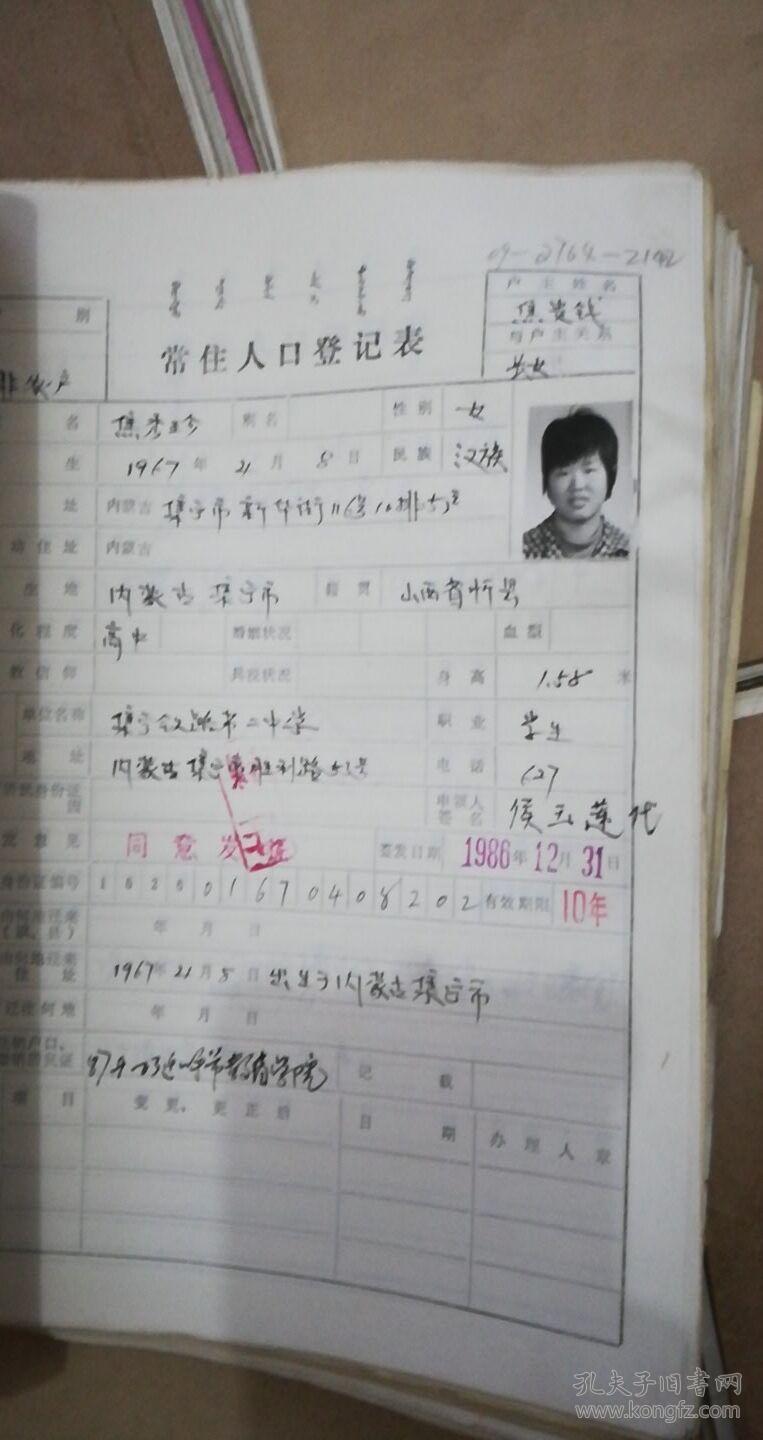 09-2764-2142
户主姓名
别
焦贵钱
常住人口登记表
与户主关系
非农户
长女
名 焦秀珍 别名 性别 女
生 1967年 21月 8日 民族 汉族
址 内蒙古 集宁市新华街
住址 内蒙古
生地 内蒙古集宁市 籍贯 山西省忻县
化程度 高中 婚姻状况 血型
教信仰 兵役状况 身高 1.58 米
单位名称 集宁铁路第二中学 职业 学生
地址 内蒙古集宁 胜利路 号 电话 627
申领人签名 侯玉莲代
发意见 同意发证 签发日期 1986年12月31日
身份证编号 670408202 有效期限 10年
年 月 日
住址 1967年21月8日 出生于内蒙古集宁市
迁往何地 年 月 日
教育学院 记载
项目 变更、更正后 日期 办理人章
孔夫子旧书网
www.kongfz.com